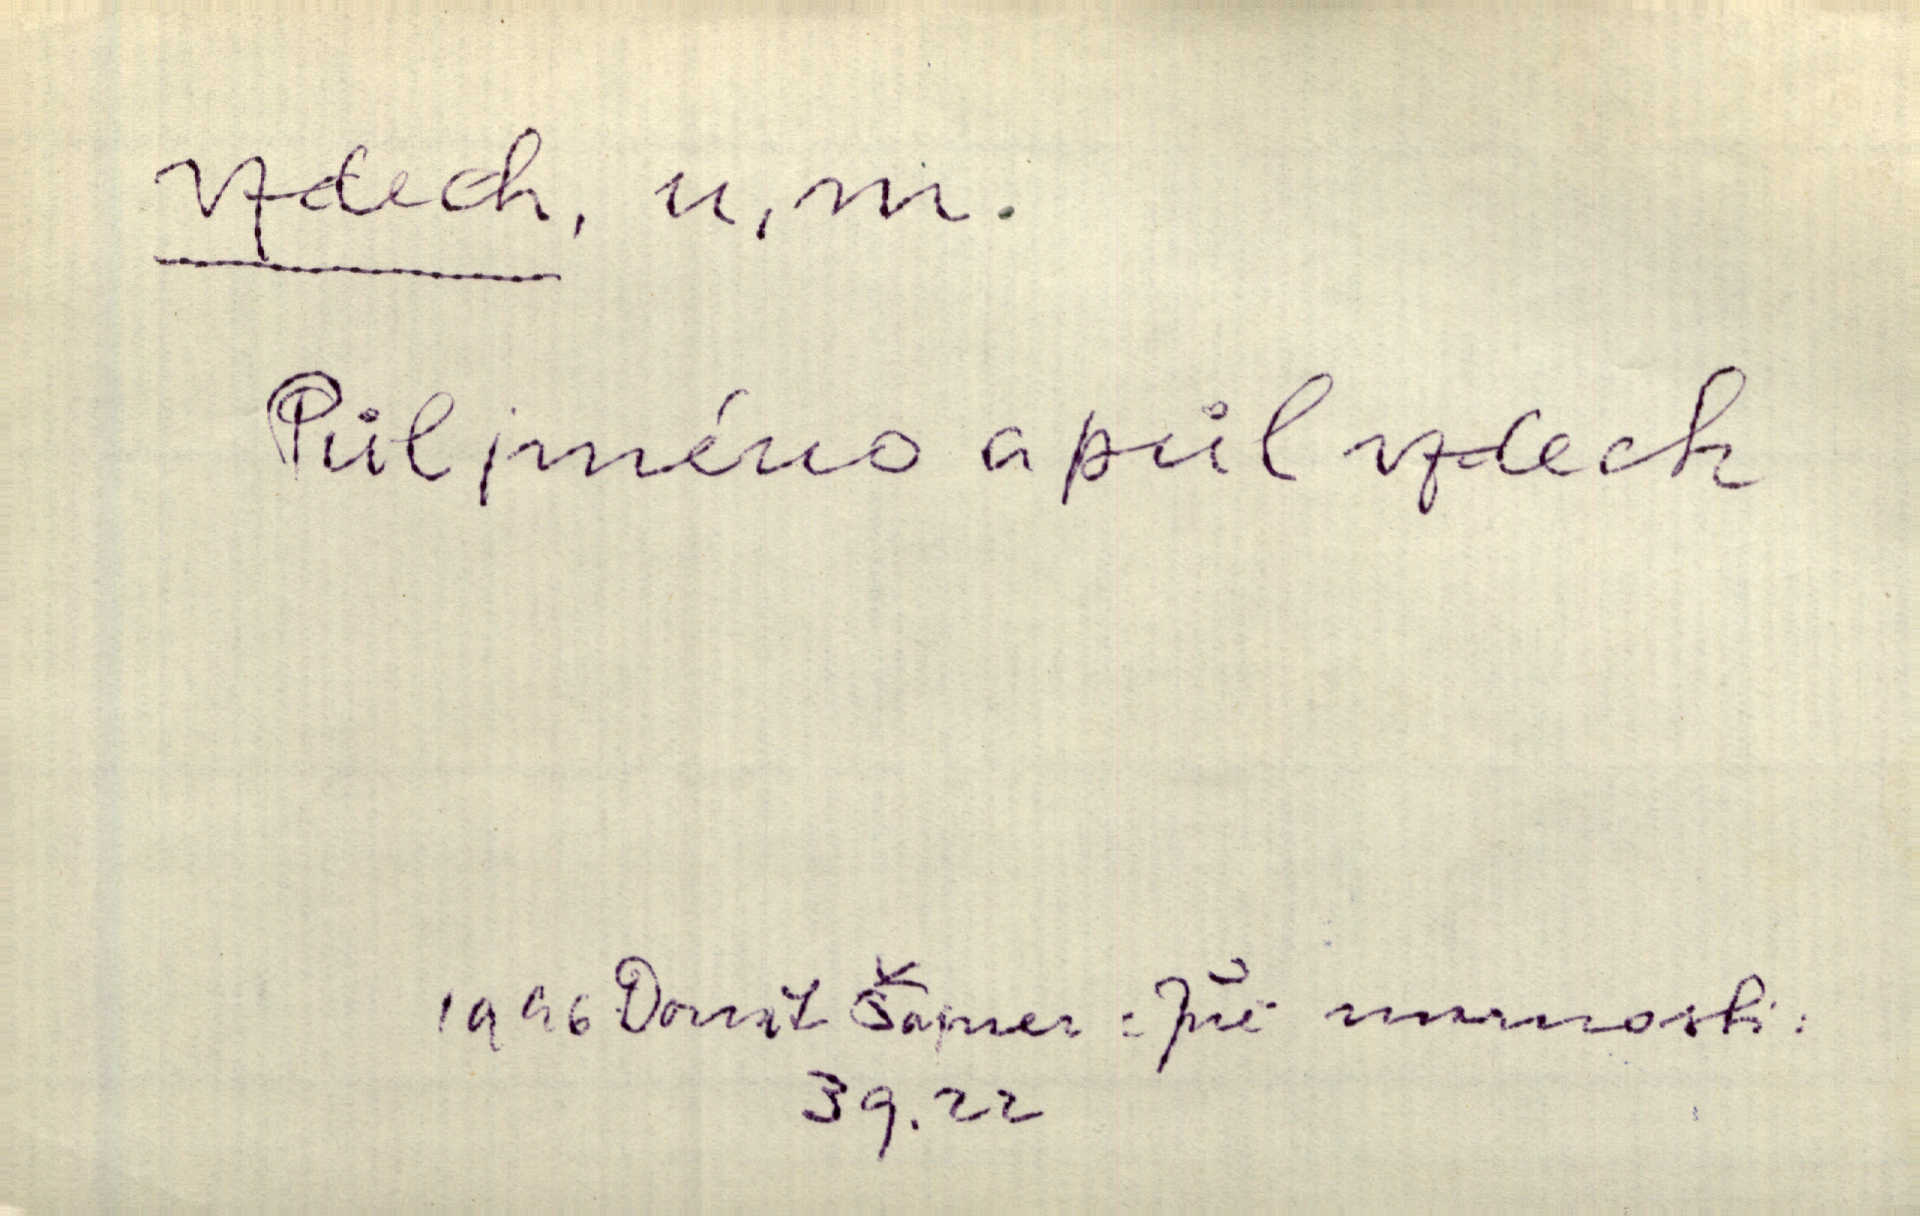 vzdech, u, m.
Půl jméno a půl vzdech
1996 Donát Šajner : Při
39.22